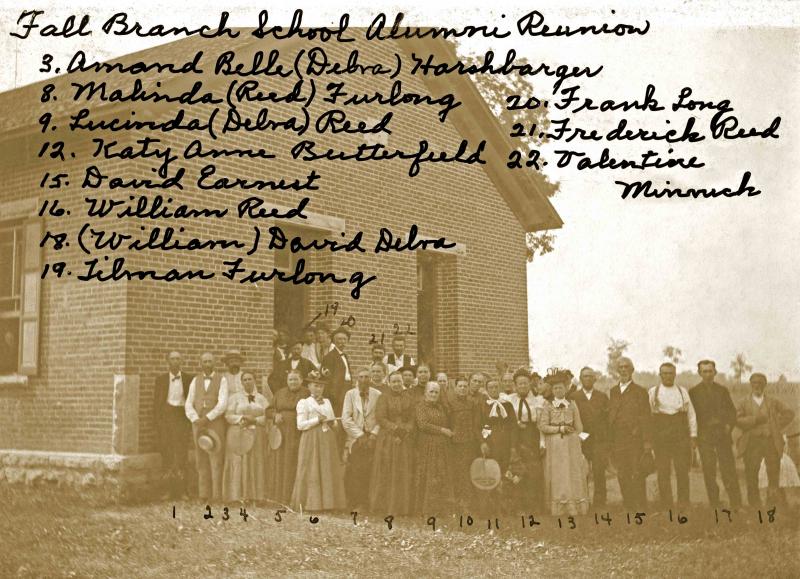 Fall Branch School Alumni Reunion
3. Amand Belle (Debra) Harshbarger
8. Malinda (Reed) Furlong
9. Lucinda (Debra) Reed
12. Katy Anne Butterfield
15. David Earnest
16. William Reed
18. (William) David Debra
19. Tilman Furlong
20. Frank Long
21. Frederick Reed
22. Valentine
Minnick
19 20 21 22
1 2 3 4 5 6 7 8 9 10 11 12 13 14 15 16 17 18